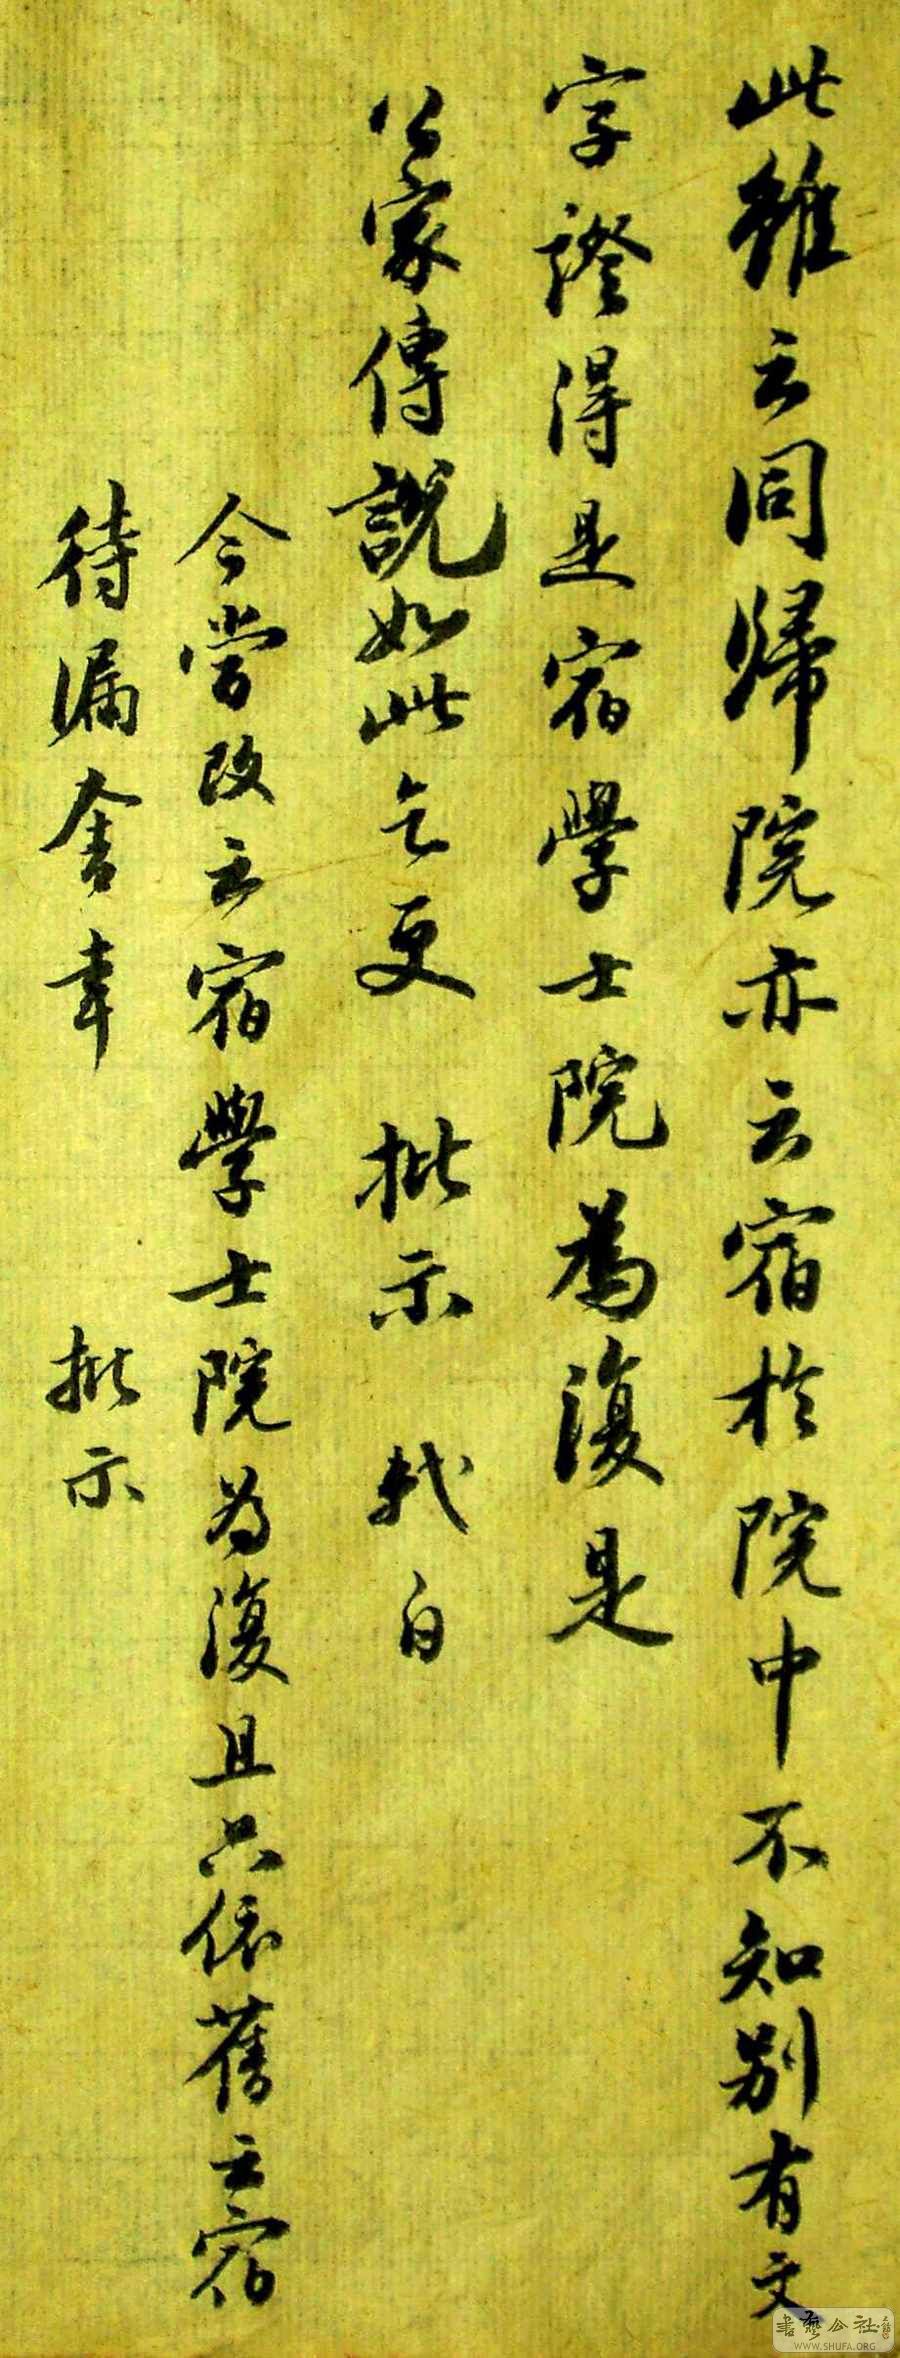 此雖云同歸院亦云宿於院中不知別有文
字證得是宿學士院為復是
公家傳說如此乞更 批示 軾白
今嘗改云宿學士院為復且只依舊云宿
待漏舍幸 批示
書藝公社
WWW.SHUFA.ORG